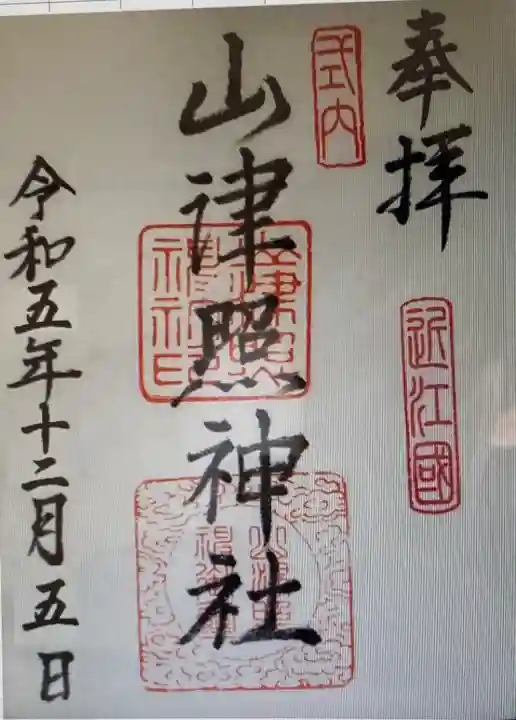 奉拝
近江國
式内
山津照神社
令和五年十二月五日